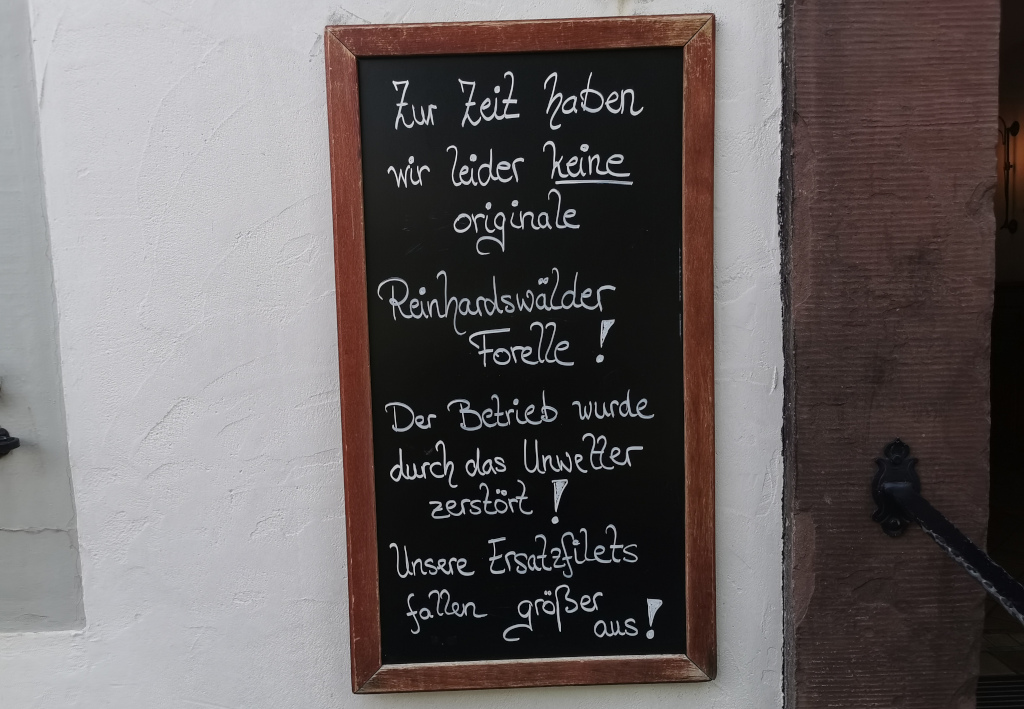 Zur Zeit haben
wir leider keine
originale
Reinhardswälder
Forelle !
Der Betrieb wurde
durch das Unwetter
zerstört !
Unsere Ersatzfilets
fallen größer
aus !